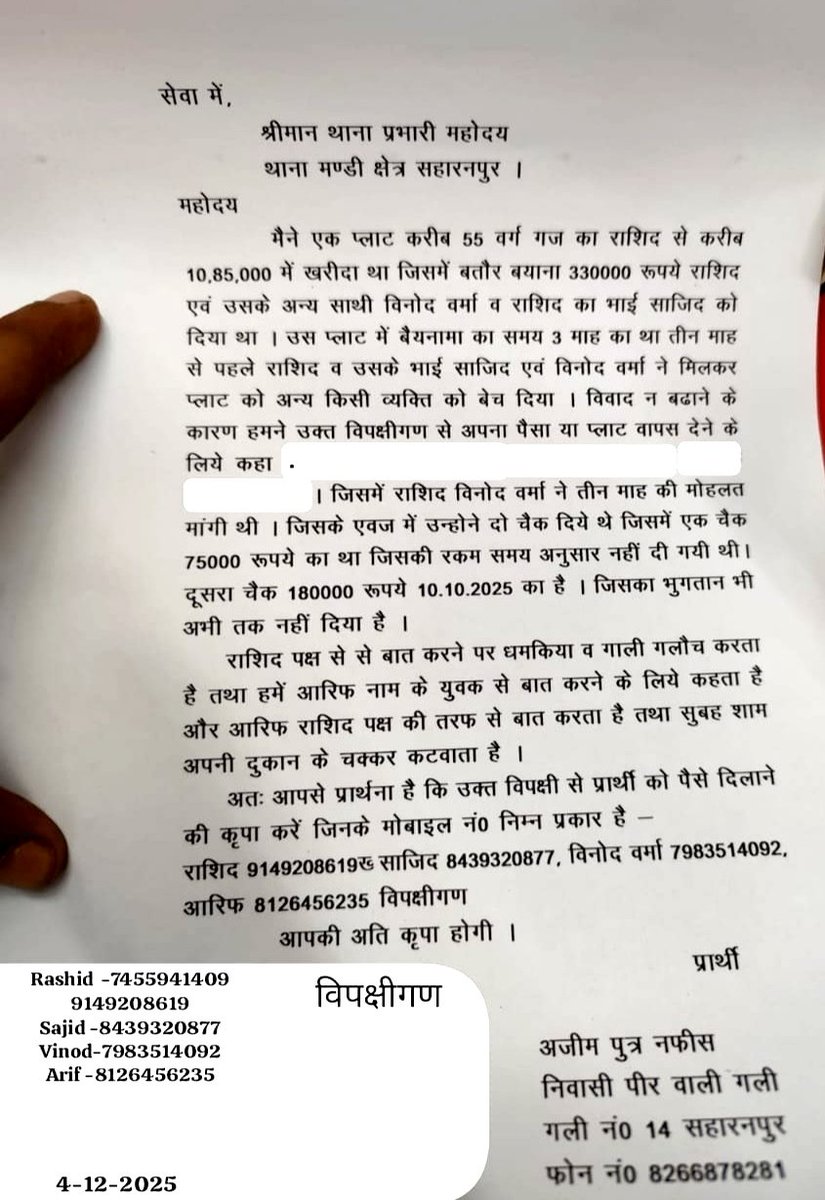 सेवा में,
श्रीमान थाना प्रभारी महोदय
थाना मण्डी क्षेत्र सहारनपुर ।
महोदय
मैने एक प्लाट करीब 55 वर्ग गज का राशिद से करीब
10,85,000 में खरीदा था जिसमें बतौर बयाना 330000 रूपये राशिद
एवं उसके अन्य साथी विनोद वर्मा व राशिद का भाई साजिद को
दिया था । उस प्लाट में बैयनामा का समय 3 माह का था तीन माह
से पहले राशिद व उसके भाई साजिद एवं विनोद वर्मा ने मिलकर
प्लाट को अन्य किसी व्यक्ति को बेच दिया । विवाद न बढाने के
कारण हमने उक्त विपक्षीगण से अपना पैसा या प्लाट वापस देने के
लिये कहा .
। जिसमें राशिद विनोद वर्मा ने तीन माह की मोहलत
मांगी थी । जिसके एवज में उन्होने दो चैक दिये थे जिसमें एक चैक
75000 रूपये का था जिसकी रकम समय अनुसार नहीं दी गयी थी।
दूसरा चैक 180000 रूपये 10.10.2025 का है । जिसका भुगतान भी
अभी तक नहीं दिया है ।
राशिद पक्ष से से बात करने पर धमकिया व गाली गलौच करता
है तथा हमें आरिफ नाम के युवक से बात करने के लिये कहता है
और आरिफ राशिद पक्ष की तरफ से बात करता है तथा सुबह शाम
अपनी दुकान के चक्कर कटवाता है ।
अतः आपसे प्रार्थना है कि उक्त विपक्षी से प्रार्थी को पैसे दिलाने
की कृपा करें जिनके मोबाइल नं0 निम्न प्रकार है –
राशिद 9149208619ख् साजिद 8439320877, विनोद वर्मा 7983514092,
आरिफ 8126456235 विपक्षीगण
आपकी अति कृपा होगी ।
प्रार्थी
अजीम पुत्र नफीस
निवासी पीर वाली गली
गली नं0 14 सहारनपुर
फोन नं0 8266878281
विपक्षीगण
Rashid -7455941409
9149208619
Sajid -8439320877
Vinod-7983514092
Arif -8126456235
4-12-2025